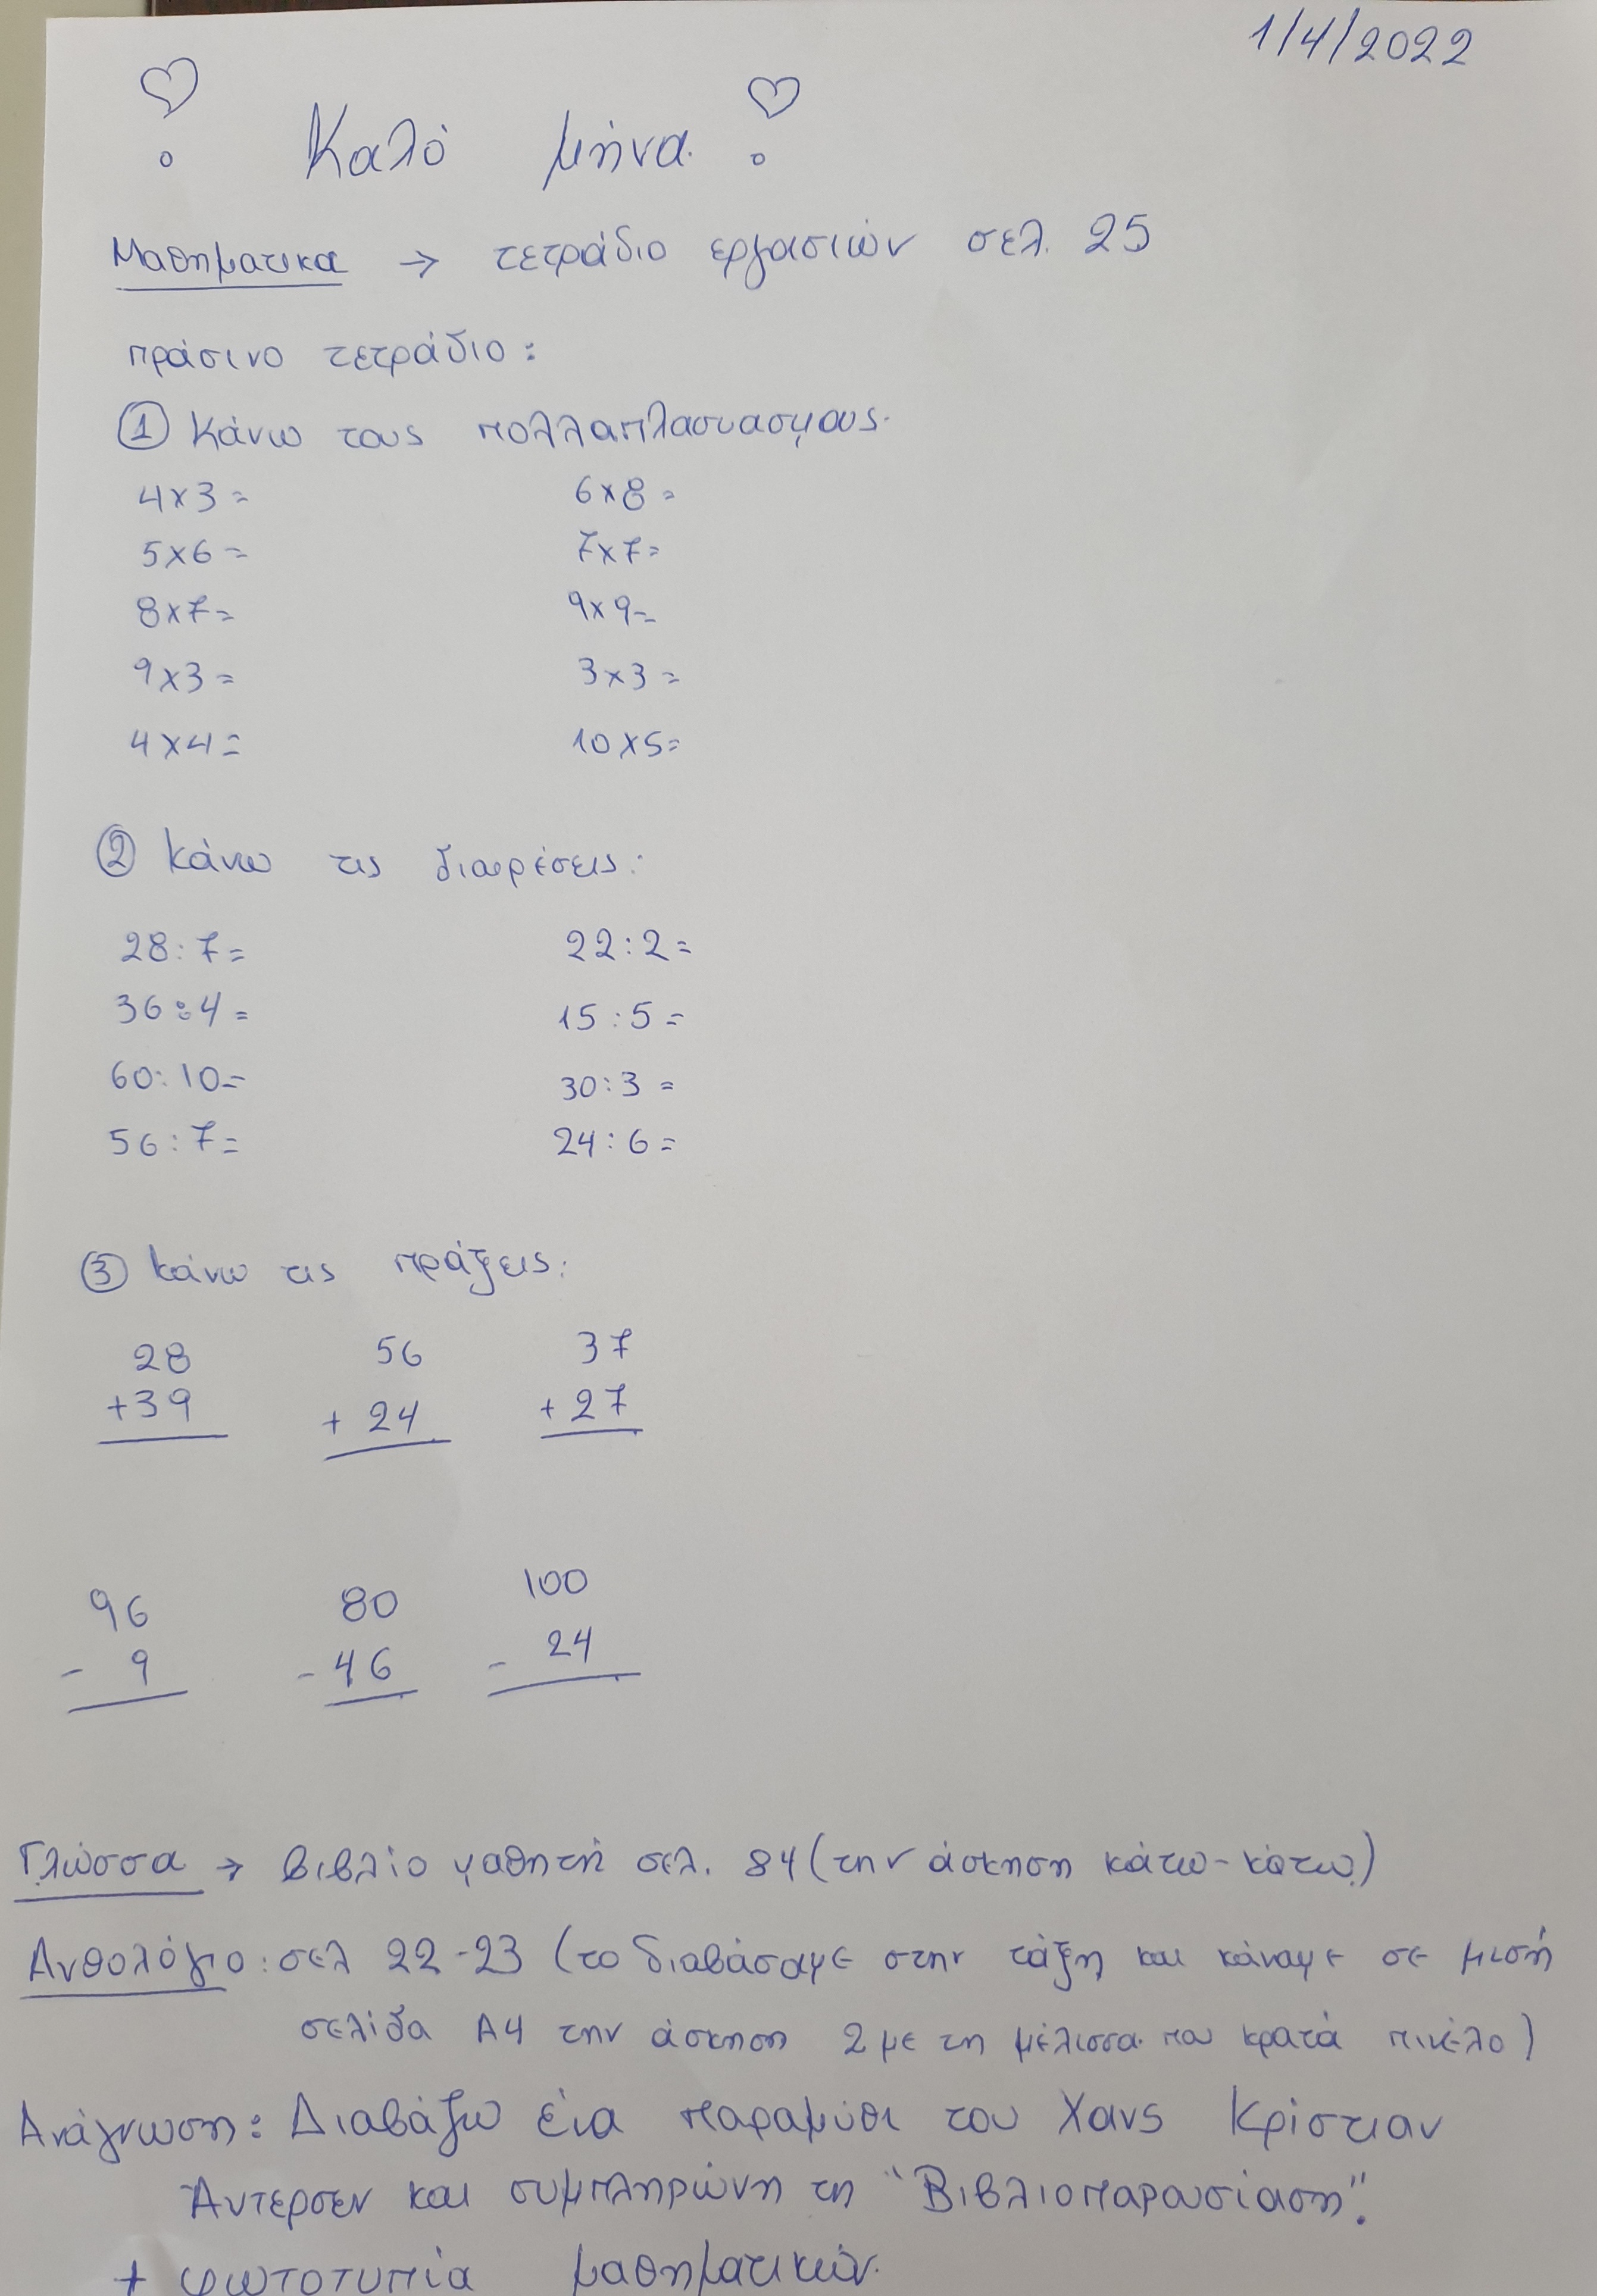 1/4/2022
Καλό μήνα.
Μαθηματικα → τετράδιο εργασιών σελ. 25
πράσινο τετράδιο:
① Κάνω τους πολλαπλασιασμους.
4x3= 6x8=
5x6= 7x7=
8x7= 9x9=
9x3= 3x3=
4x4= 10x5=
② Κάνω τις διαιρέσεις:
28:7= 22:2=
36:4= 15:5=
60:10= 30:3=
56:7= 24:6=
③ Κάνω τις πράξεις:
28 56 37
+39 + 24 + 27
96 80 100
- 9 - 46 - 24
Γλώσσα → Βιβλίο μαθητή σελ. 84 (την άσκηση κάτω-κάτω)
Ανθολόγιο: σελ 22-23 (το διαβάσαμε στην τάξη και κάναμε σε μισή
σελίδα Α4 την άσκηση 2 με τη μέλισσα που κρατά πινέλο)
Ανάγνωση: Διαβάζω ένα παραμύθι του Χανς Κρίστιαν
Άντερσεν και συμπληρώνη τη "Βιβλιοπαρουσίαση".
+ φωτοτυπία μαθηματικών.